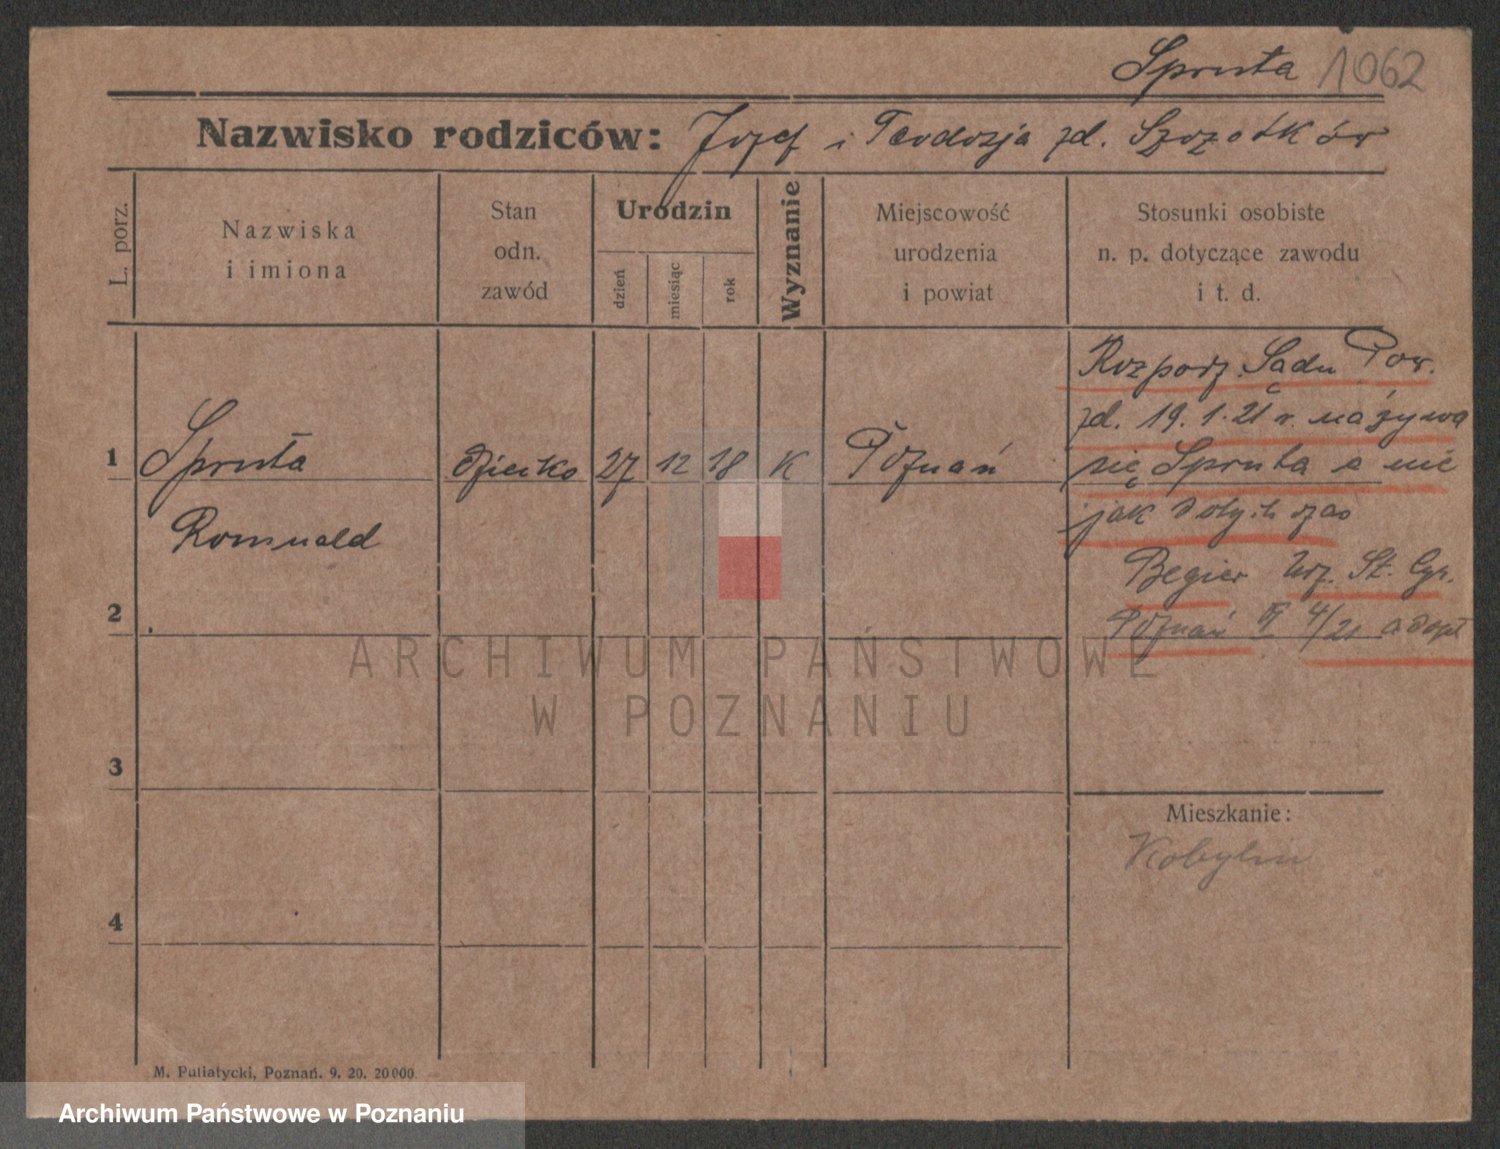 Spruta 1062
Nazwisko rodziców: Józef i Teodozja zd. Szozotków
L. porz.
Nazwiska
i imiona
Stan
odn.
zawód
Urodzin
dzień
miesiąc
rok
Wyznanie
Miejscowość
urodzenia
i powiat
Stosunki osobiste
n. p. dotyczące zawodu
i t. d.
1 Spruta dziecko 27 12 18 K Poznań
Romuald
Rozporz. Sądu Pow.
zd. 19. 1. 21 r. nazywa
się Spruta a nie
jak dotychczas
Begier Urz. St. Cyw.
Poznań 4/21 adopt
2
3
4
Mieszkanie:
Kobylin
ARCHIWUM PAŃSTWOWE
W POZNANIU
M. Putiatycki, Poznań. 9. 20. 20000.
Archiwum Państwowe w Poznaniu